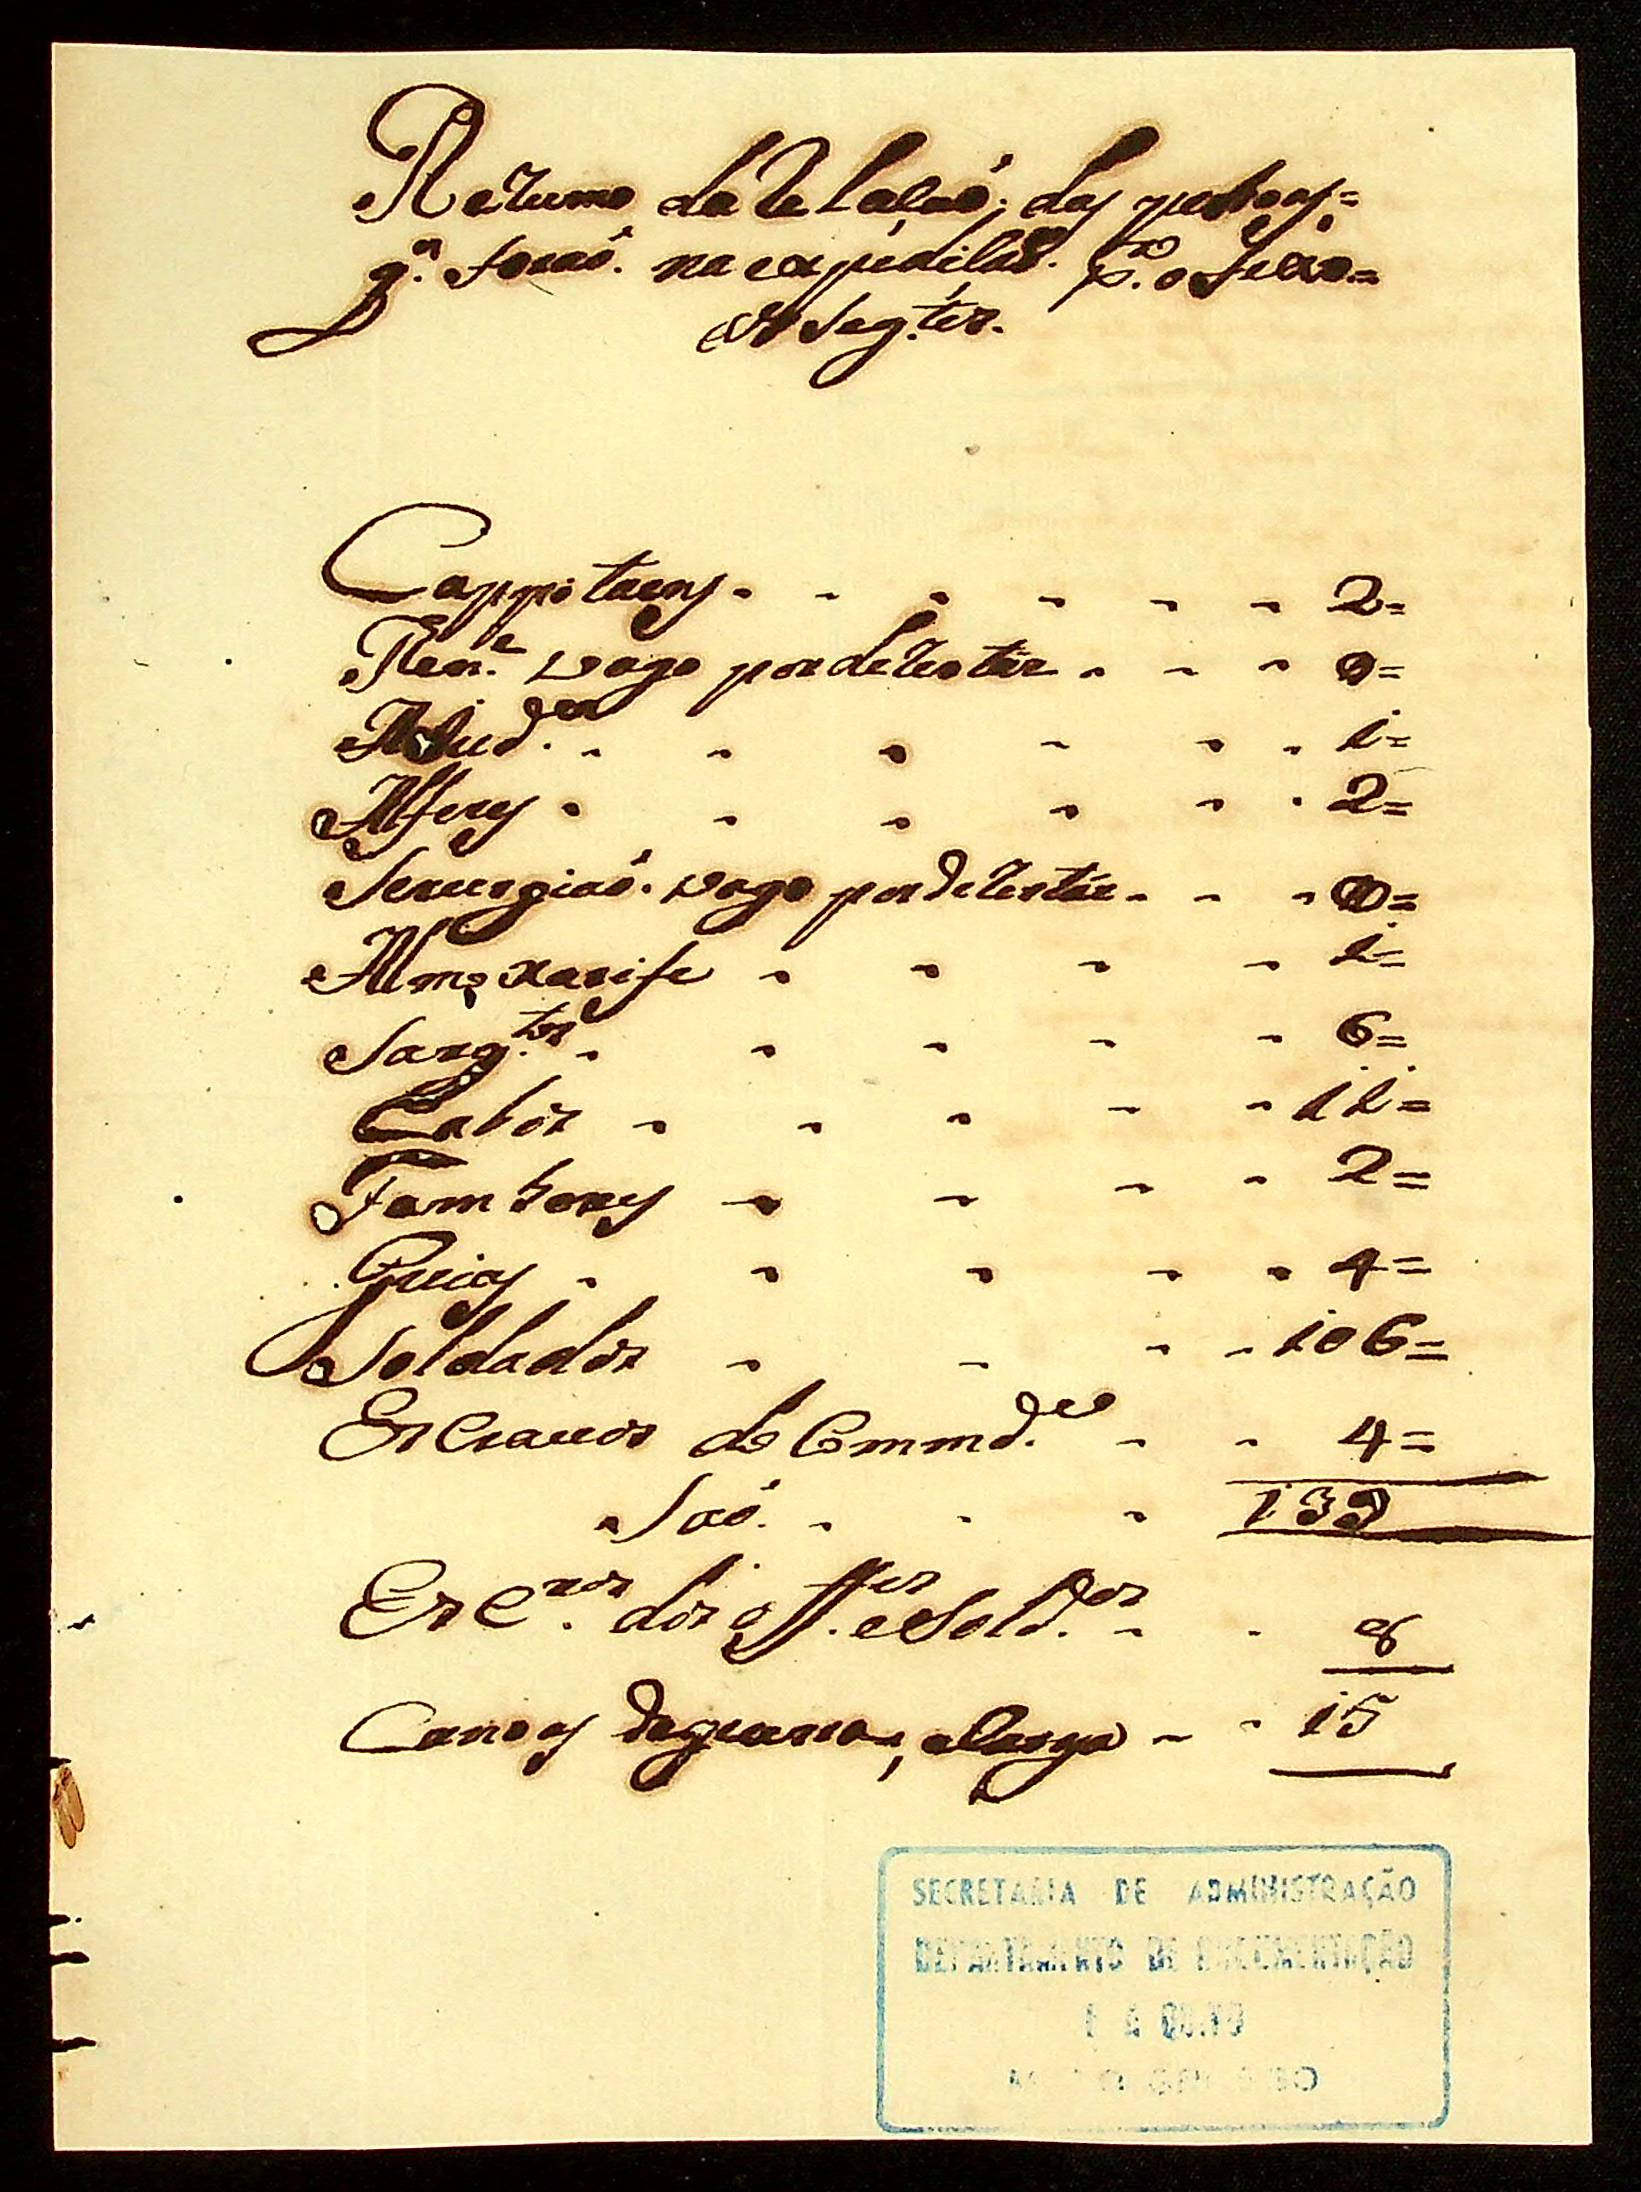 Rezumo da Relaçaõ, das pessoas=
q.ᵉ foraõ. na expediçaõ. p.ᵃ o
os seg.tes.
Cappitaens - - - - - - 2=
Ten.ᵉ vago por dezertar - - - 0=
Ajud.ᵉˢ - - - - - - 1=
Alferes - - - - - - 2=
Serurgiaõ. vago por dezertar - - - 0=
Almoxarife - - - - 1=
Sarg.tos - - - - - 6=
Cabos - - - - - 11=
Tambores - - - - 2=
Guias - - - - - 4=
Soldados - - - - 106=
Escravos do Commd.ᵉ - - 4=
Saõ. - - - 139
Esc.ᵛᵒˢ dos off.ᵉˢ e Sold.ᵒˢ - - 8
Canoas de guerra, e Carga - - 15
SECRETARIA DE ADMINISTRAÇÃO
DEPARTAMENTO DE DOCUMENTAÇÃO